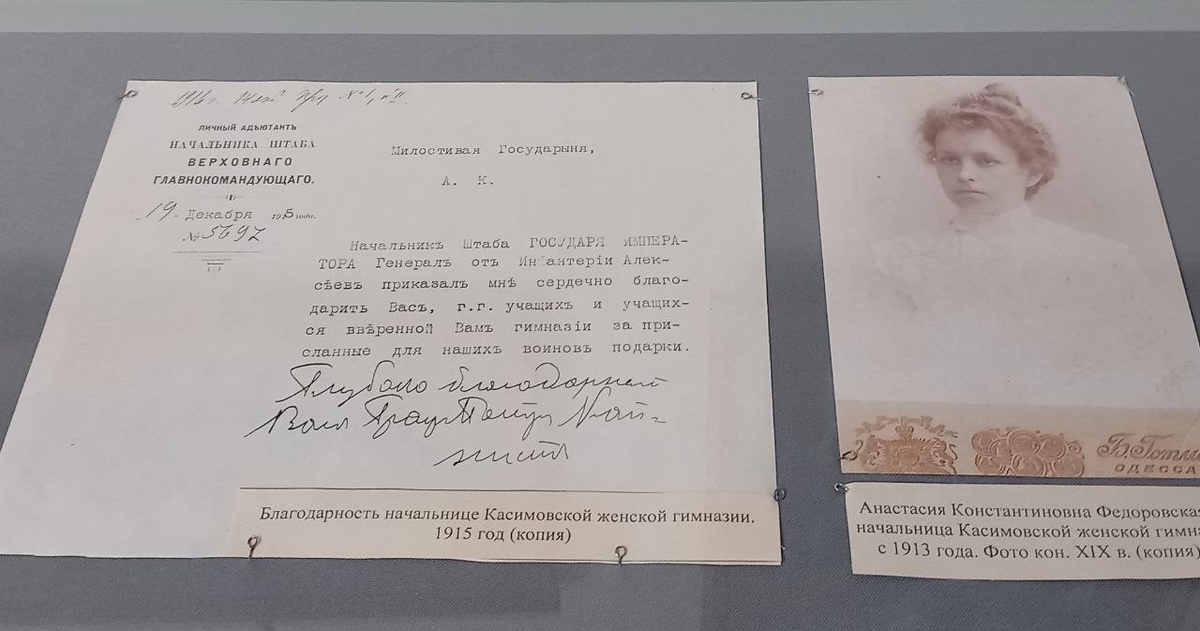 ЛИЧНЫЙ АДЪЮТАНТЪ
НАЧАЛЬНИКА ШТАБА
ВЕРХОВНАГО
ГЛАВНОКОМАНДУЮЩАГО.
19 Декабря 1915 года.
№ 5697
Милостивая Государыня,
А. К.
Начальникъ Штаба ГОСУДАРЯ ИМПЕРА-
ТОРА Генералъ отъ Инфантеріи Алек-
сѣевъ приказалъ мнѣ сердечно благо-
дарить Васъ, г.г. учащихъ и учащих-
ся ввѣренной Вамъ гимназіи за при-
сланные для нашихъ воиновъ подарки.
Глубоко благодарный
Благодарность начальнице Касимовской женской гимназии.
1915 год (копия)
ОДЕССА
Анастасия Константиновна Федоровская
начальница Касимовской женской гимна
с 1913 года. Фото кон. XIX в. (копия)